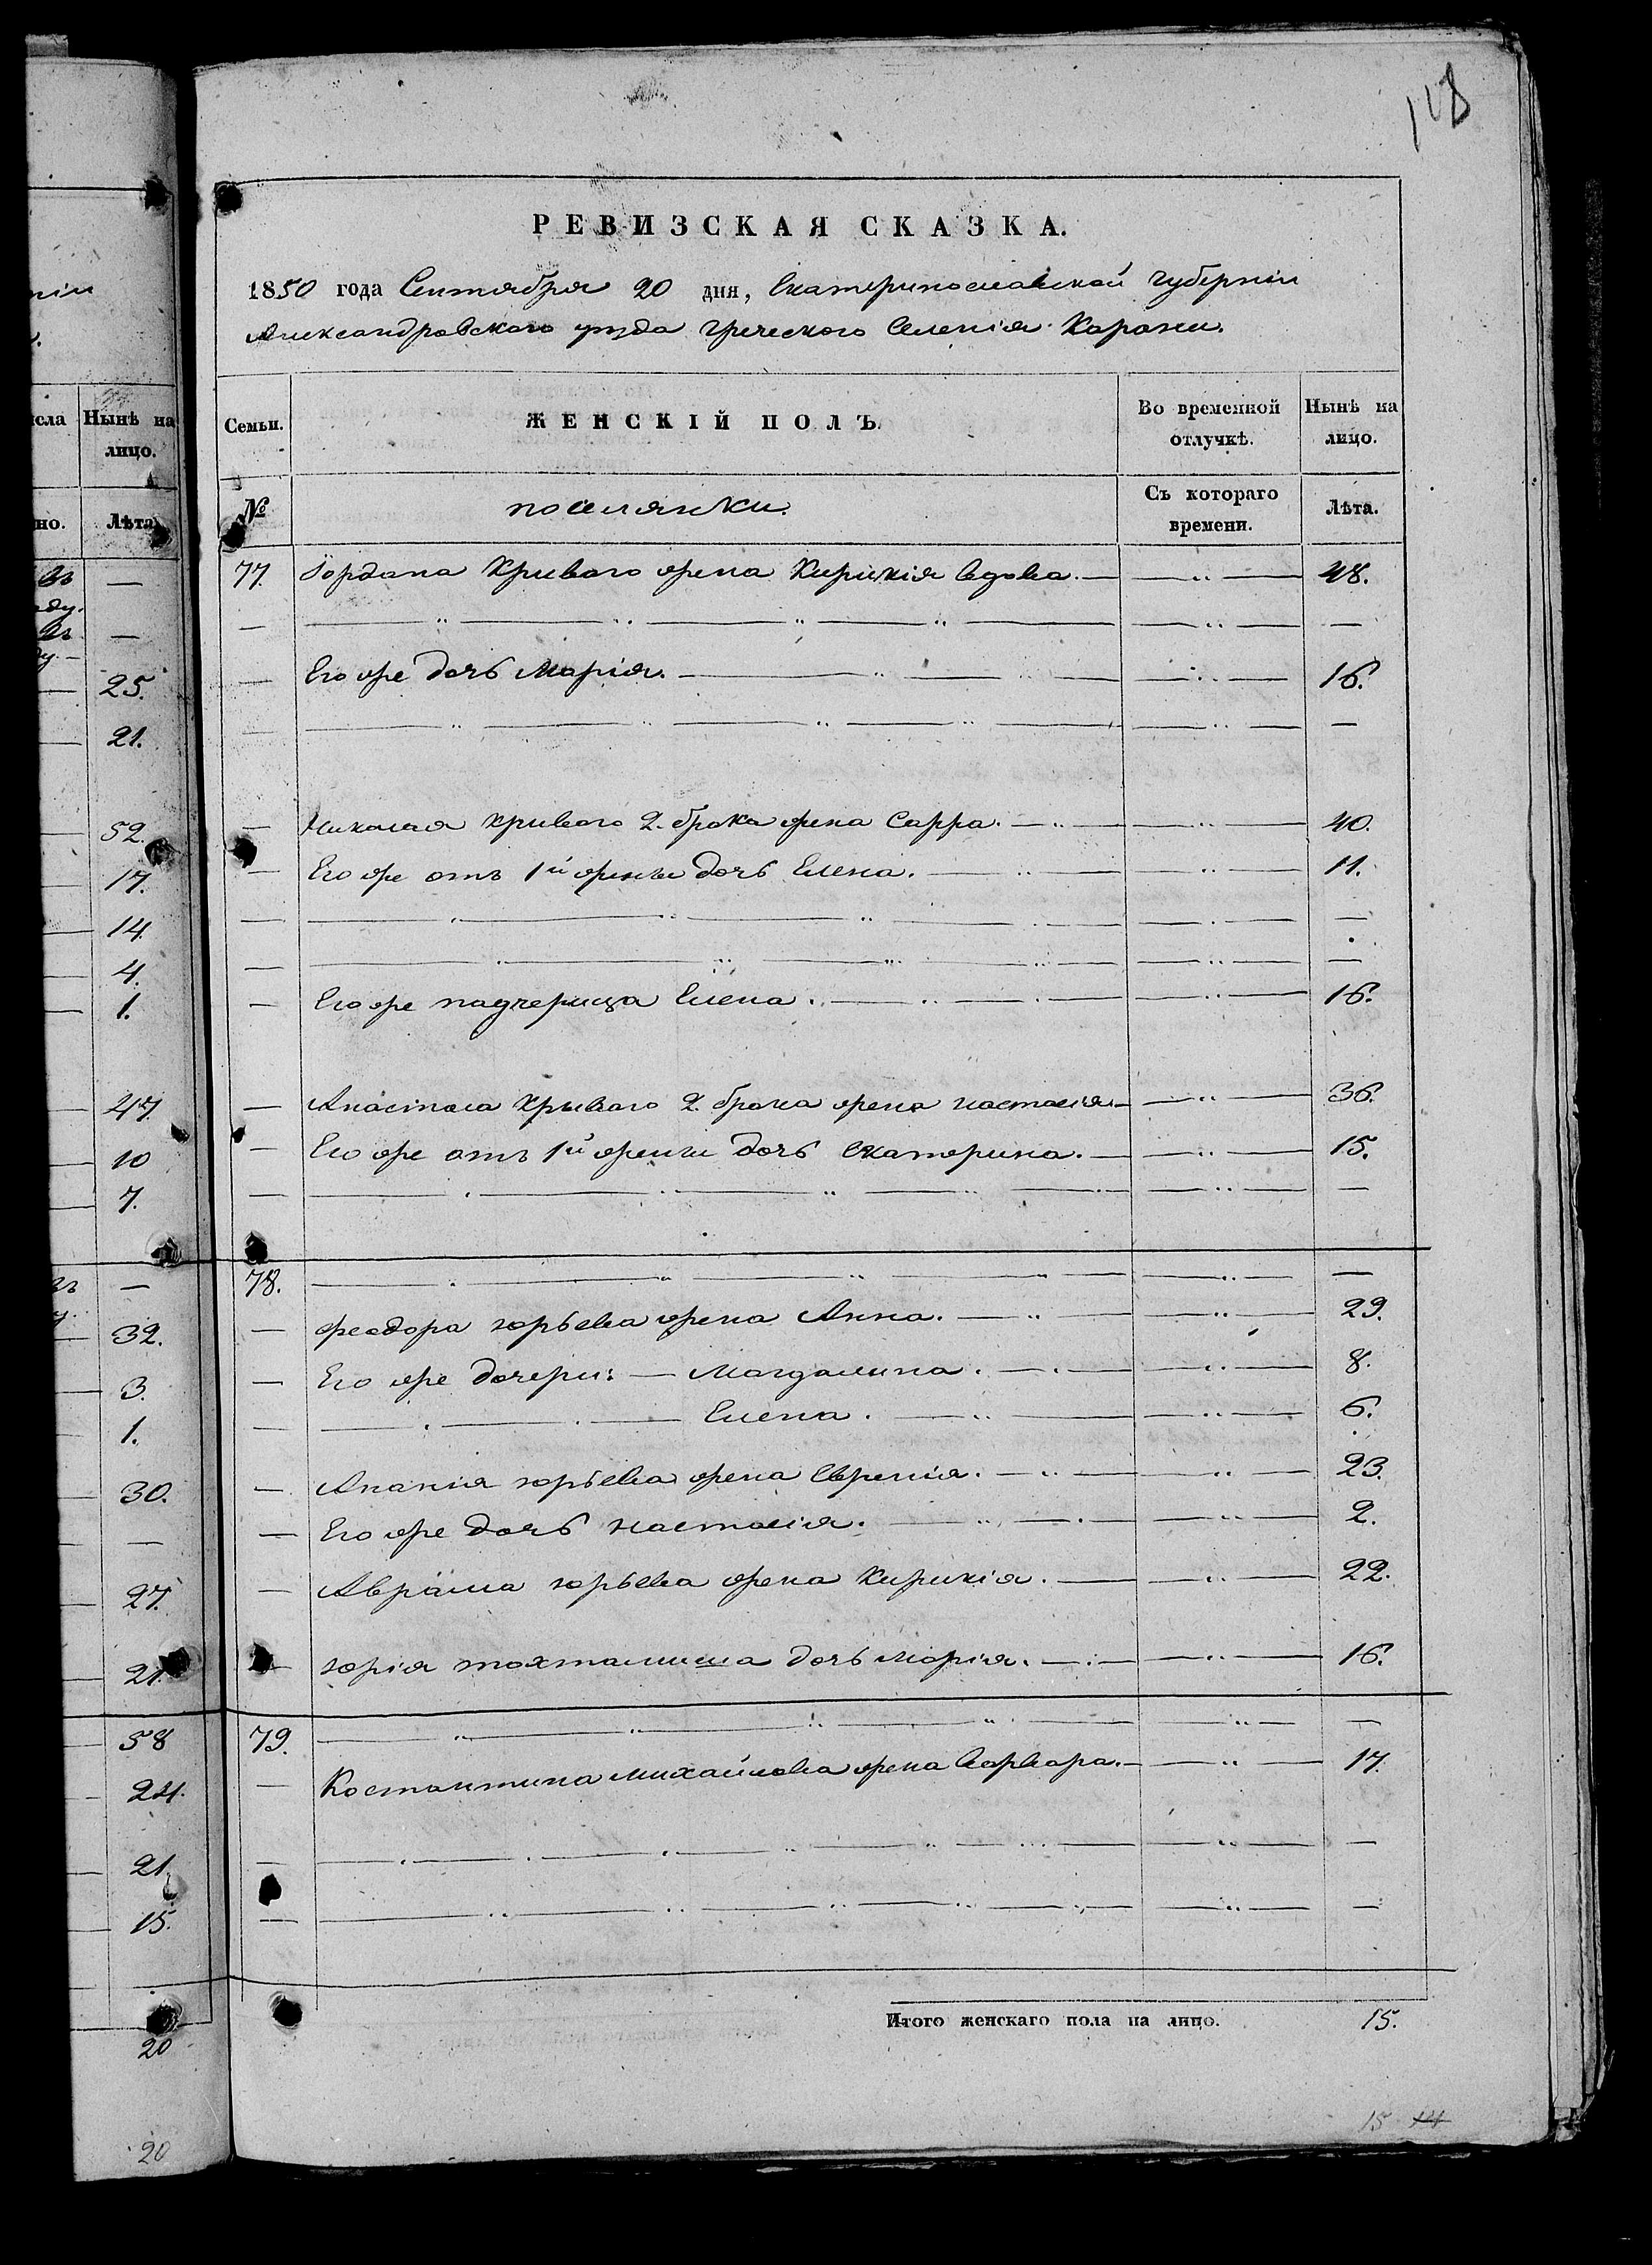 118
РЕВИЗСКАЯ СКАЗКА.
1850 года Сентября 20 дня, Екатеринославской Губерніи
Александровскаго уѣзда Греческого Селенія Карани.
Семьи. ЖЕНСКІЙ ПОЛЪ. Во временной отлучкѣ. Нынѣ на лицо.
№ поселянки. Съ котораго времени. Лѣта.
77. Іордана Кривого жена Кирикія вдова. — — " — 48.
— — " — " — " — " — — " — —
— Его же дочь Марія. — " — — " — 16.
— " — " — " — " — — " — —
— Николая Кривого 2. брака жена Сарра. — " — — " — 40.
— Его же отъ 1й жены дочь Елена. — " — — " — 11.
— — " — " — " — — " — —
— — " — " — " — " — — " — —
— Его же падчерица Елена. — " — — " — 16.
— Анастаса Кривого 2. брака жена Настасія — — " — 36.
— Его же отъ 1й жены дочь Екатерина. — — " — 15.
— — " — " — " — " — — " — —
78. — " — " — " — " — — " — —
— Феодора Юрьева жена Анна. — " — — " — 29.
— Его же дочери: — Магдалина. — " — — " — 8.
— — " — " — Елена. — " — — " — 6.
— Ананія Юрьева жена Евгенія. — " — — " — 23.
— Его же дочь Настасія. — " — — " — 2.
— Авраама Юрьева жена Кирикія. — — " — 22.
— Юрія Тохтамиша дочь Марія. — " — — " — 16.
79. — " — " — " — " — — " — —
— Костантина Михайлова жена Варвара. — — " — 17.
— — " — " — " — " — — " — —
— — " — " — " — " — — " — —
Итого женскаго пола на лицо. 15.
15 14
сла Нынѣ на лицо.
но. Лѣта
въ —
ду.
въ —
25.
21.
52.
17.
14.
4.
1.
47.
10
7.
—
32.
3.
1.
30.
—
27.
21.
58
24.
21.
15.
20
20